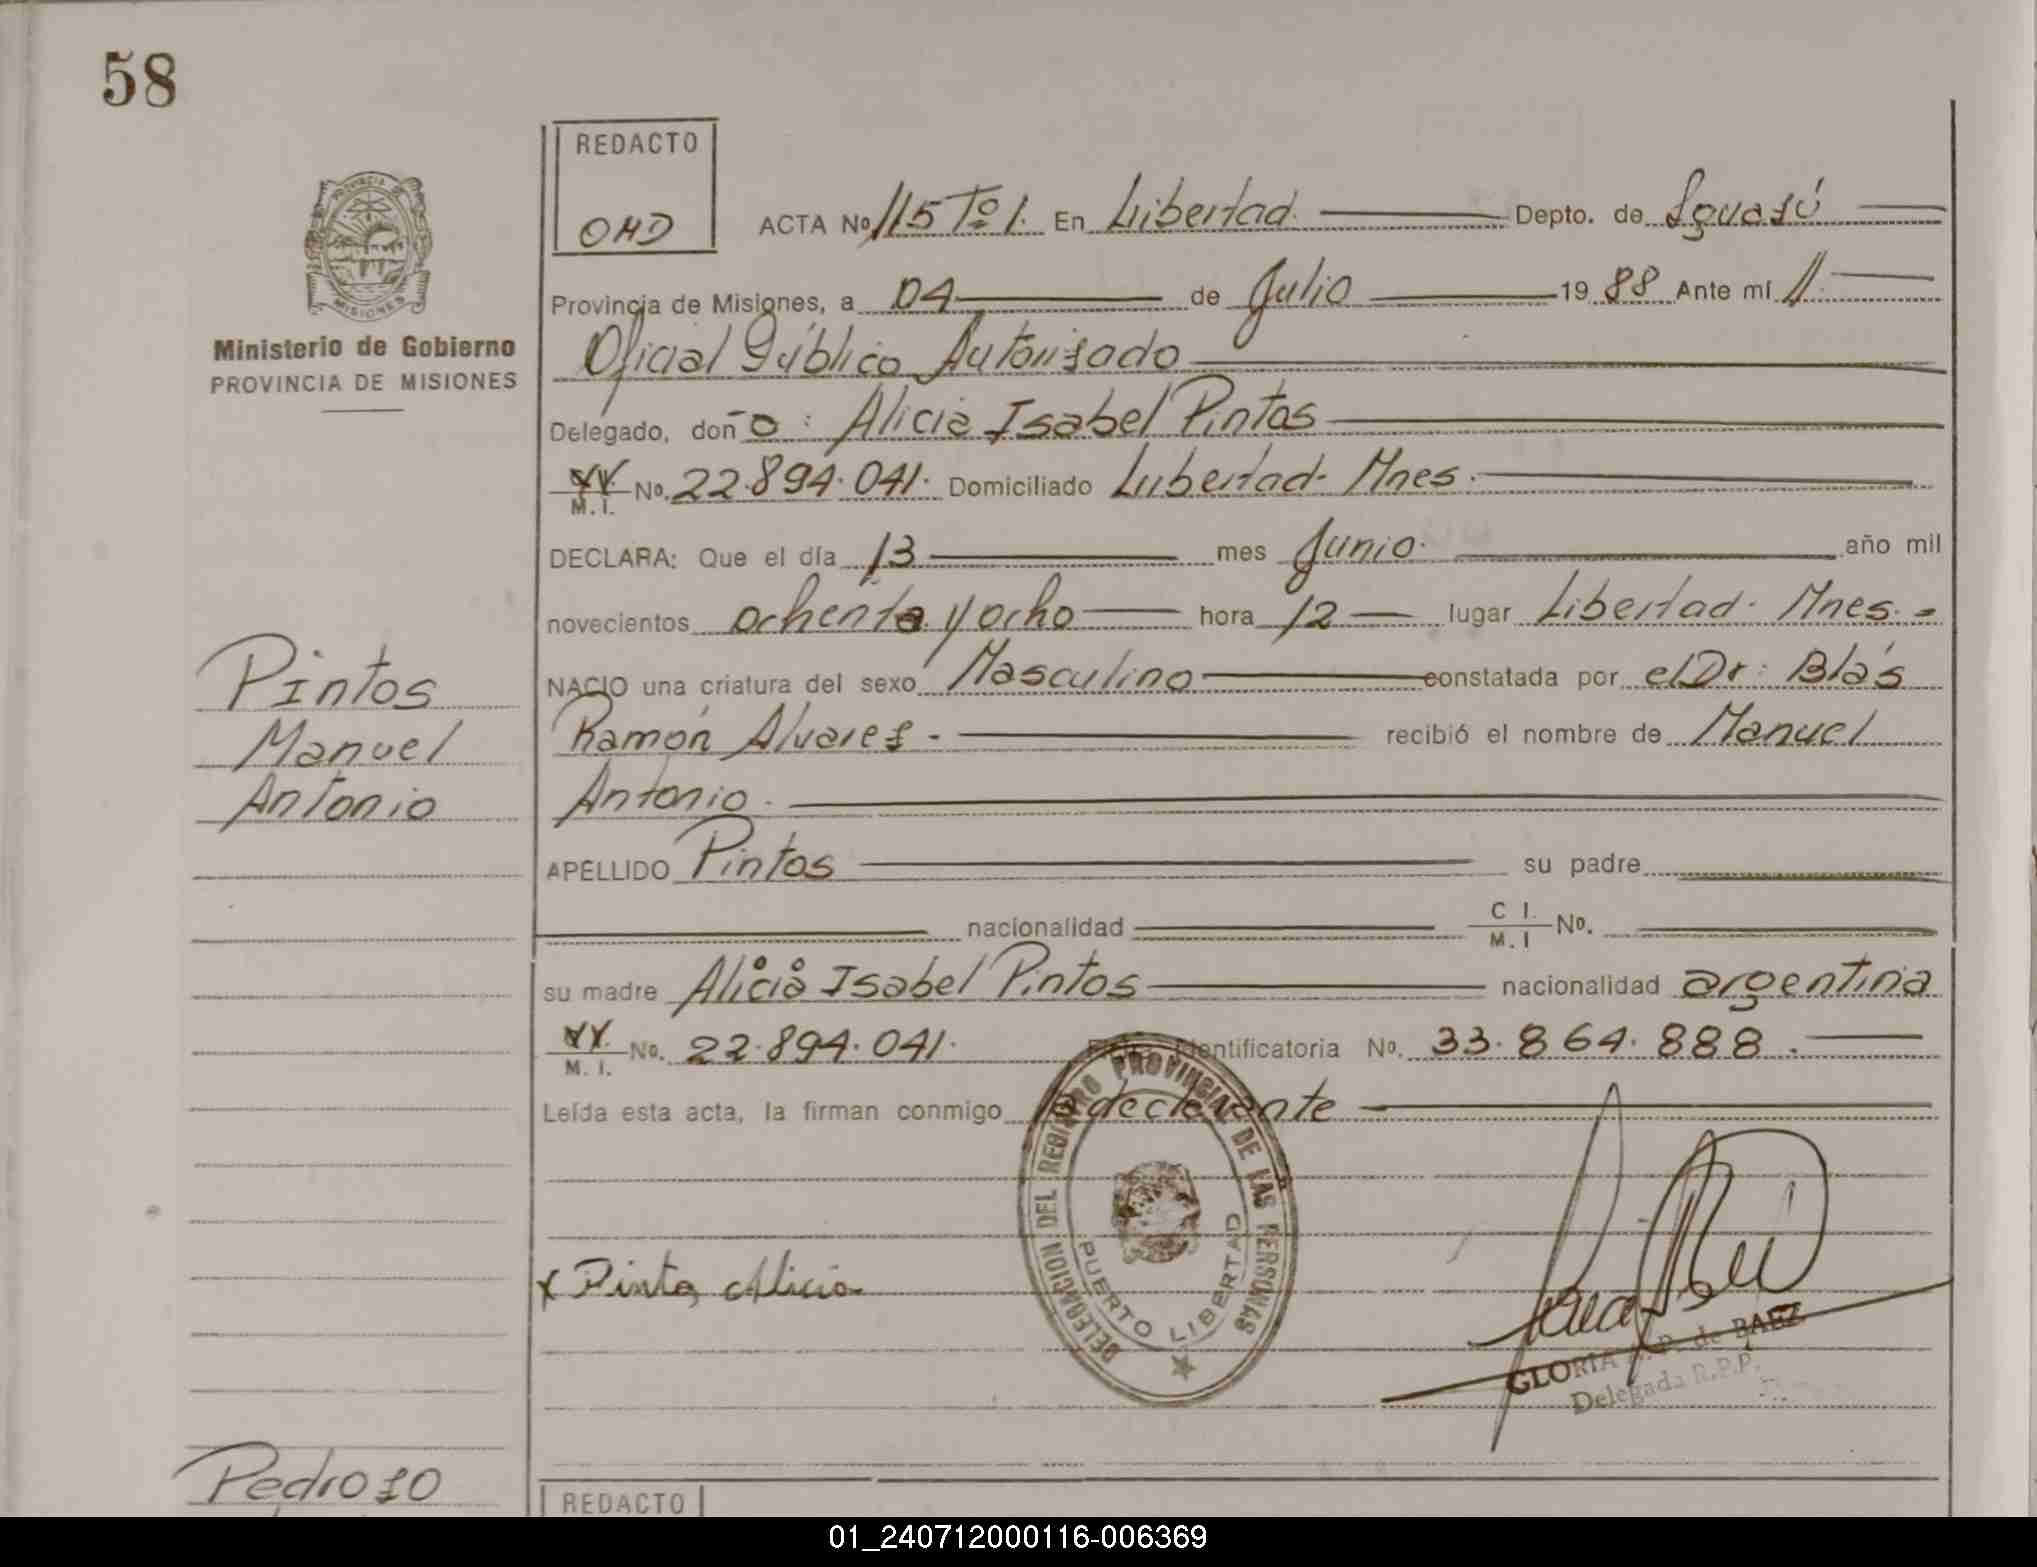 58
REDACTO
OHD
PROVINCIA DE
MISIONES
Ministerio de Gobierno
PROVINCIA DE MISIONES
ACTA No 115 Tº 1. En Libertad. Depto. de Iguazú
Provincia de Misiones, a 04 de Julio 1988 Ante mí
Oficial Público Autorizado
Delegado, doña: Alicia Isabel Pintos
M. I. No. 22.894.041. Domiciliado Libertad- Mnes.
DECLARA: Que el día 13 mes Junio. año mil
novecientos ochenta y ocho hora 12 lugar Libertad- Mnes.-
NACIO una criatura del sexo Masculino constatada por el Dr: Blás
Ramón Alvarez - recibió el nombre de Manuel
Antonio.
APELLIDO Pintos su padre
nacionalidad C I. M. I No.
su madre Alicia Isabel Pintos nacionalidad argentina
M. I. No. 22.894.041. Ficha Identificatoria No. 33.864.888.
Leída esta acta, la firman conmigo la declarante
Pintos
Manuel
Antonio
DELEGACION DEL REGISTRO PROVINCIAL DE LAS PERSONAS
PUERTO LIBERTAD
x Pinto Alicia
GLORIA de BAEZ
Delegada R.P.P.
Pedrozo
REDACTO
01_240712000116-006369